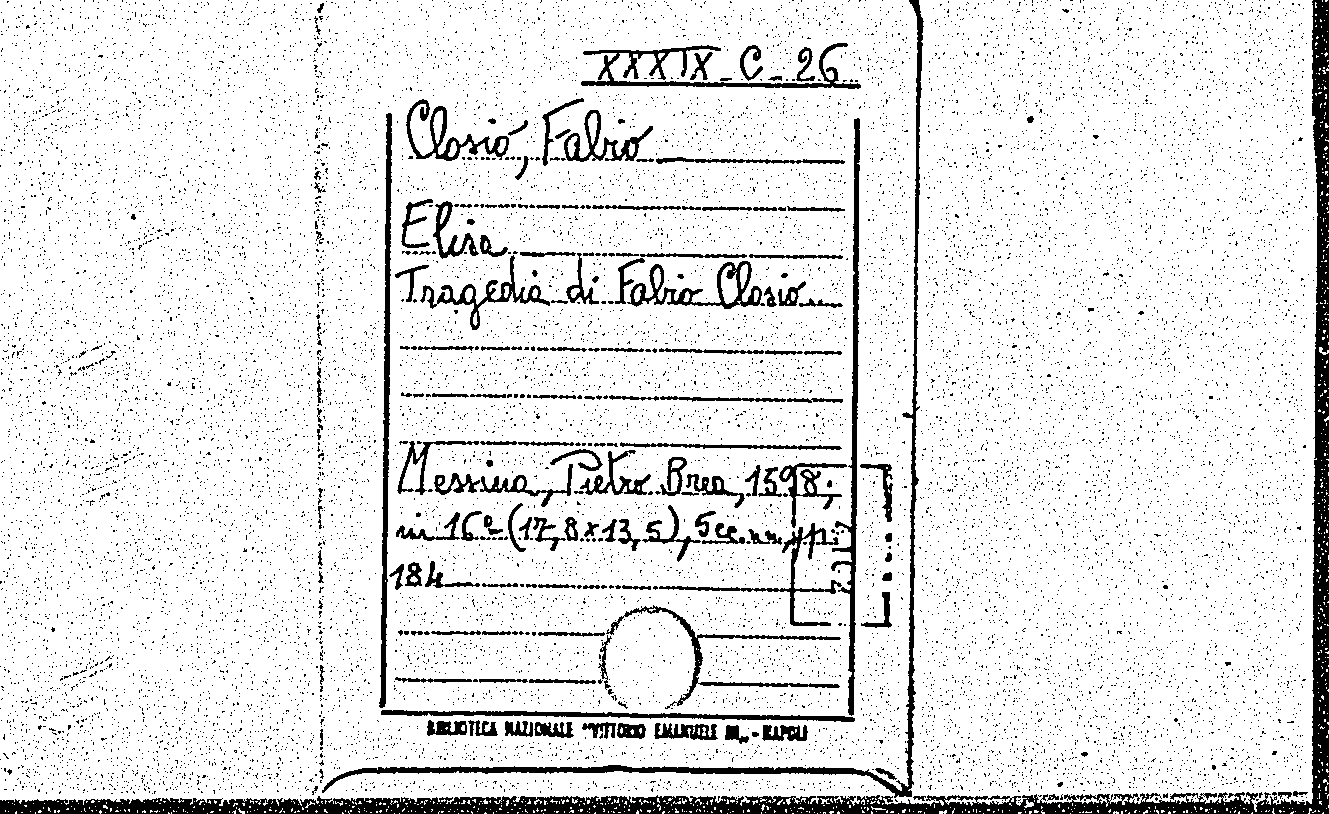 XXXIX - C - 26
Closio, Fabio
Elisa
Tragedia di Fabio Closio..
Messina, Pietro Brea, 1598;
in 16° (17,8x13,5), 5 cc. nn., pp.
184
BIBLIOTECA NAZIONALE "VITTORIO EMANUELE III„ - NAPOLI